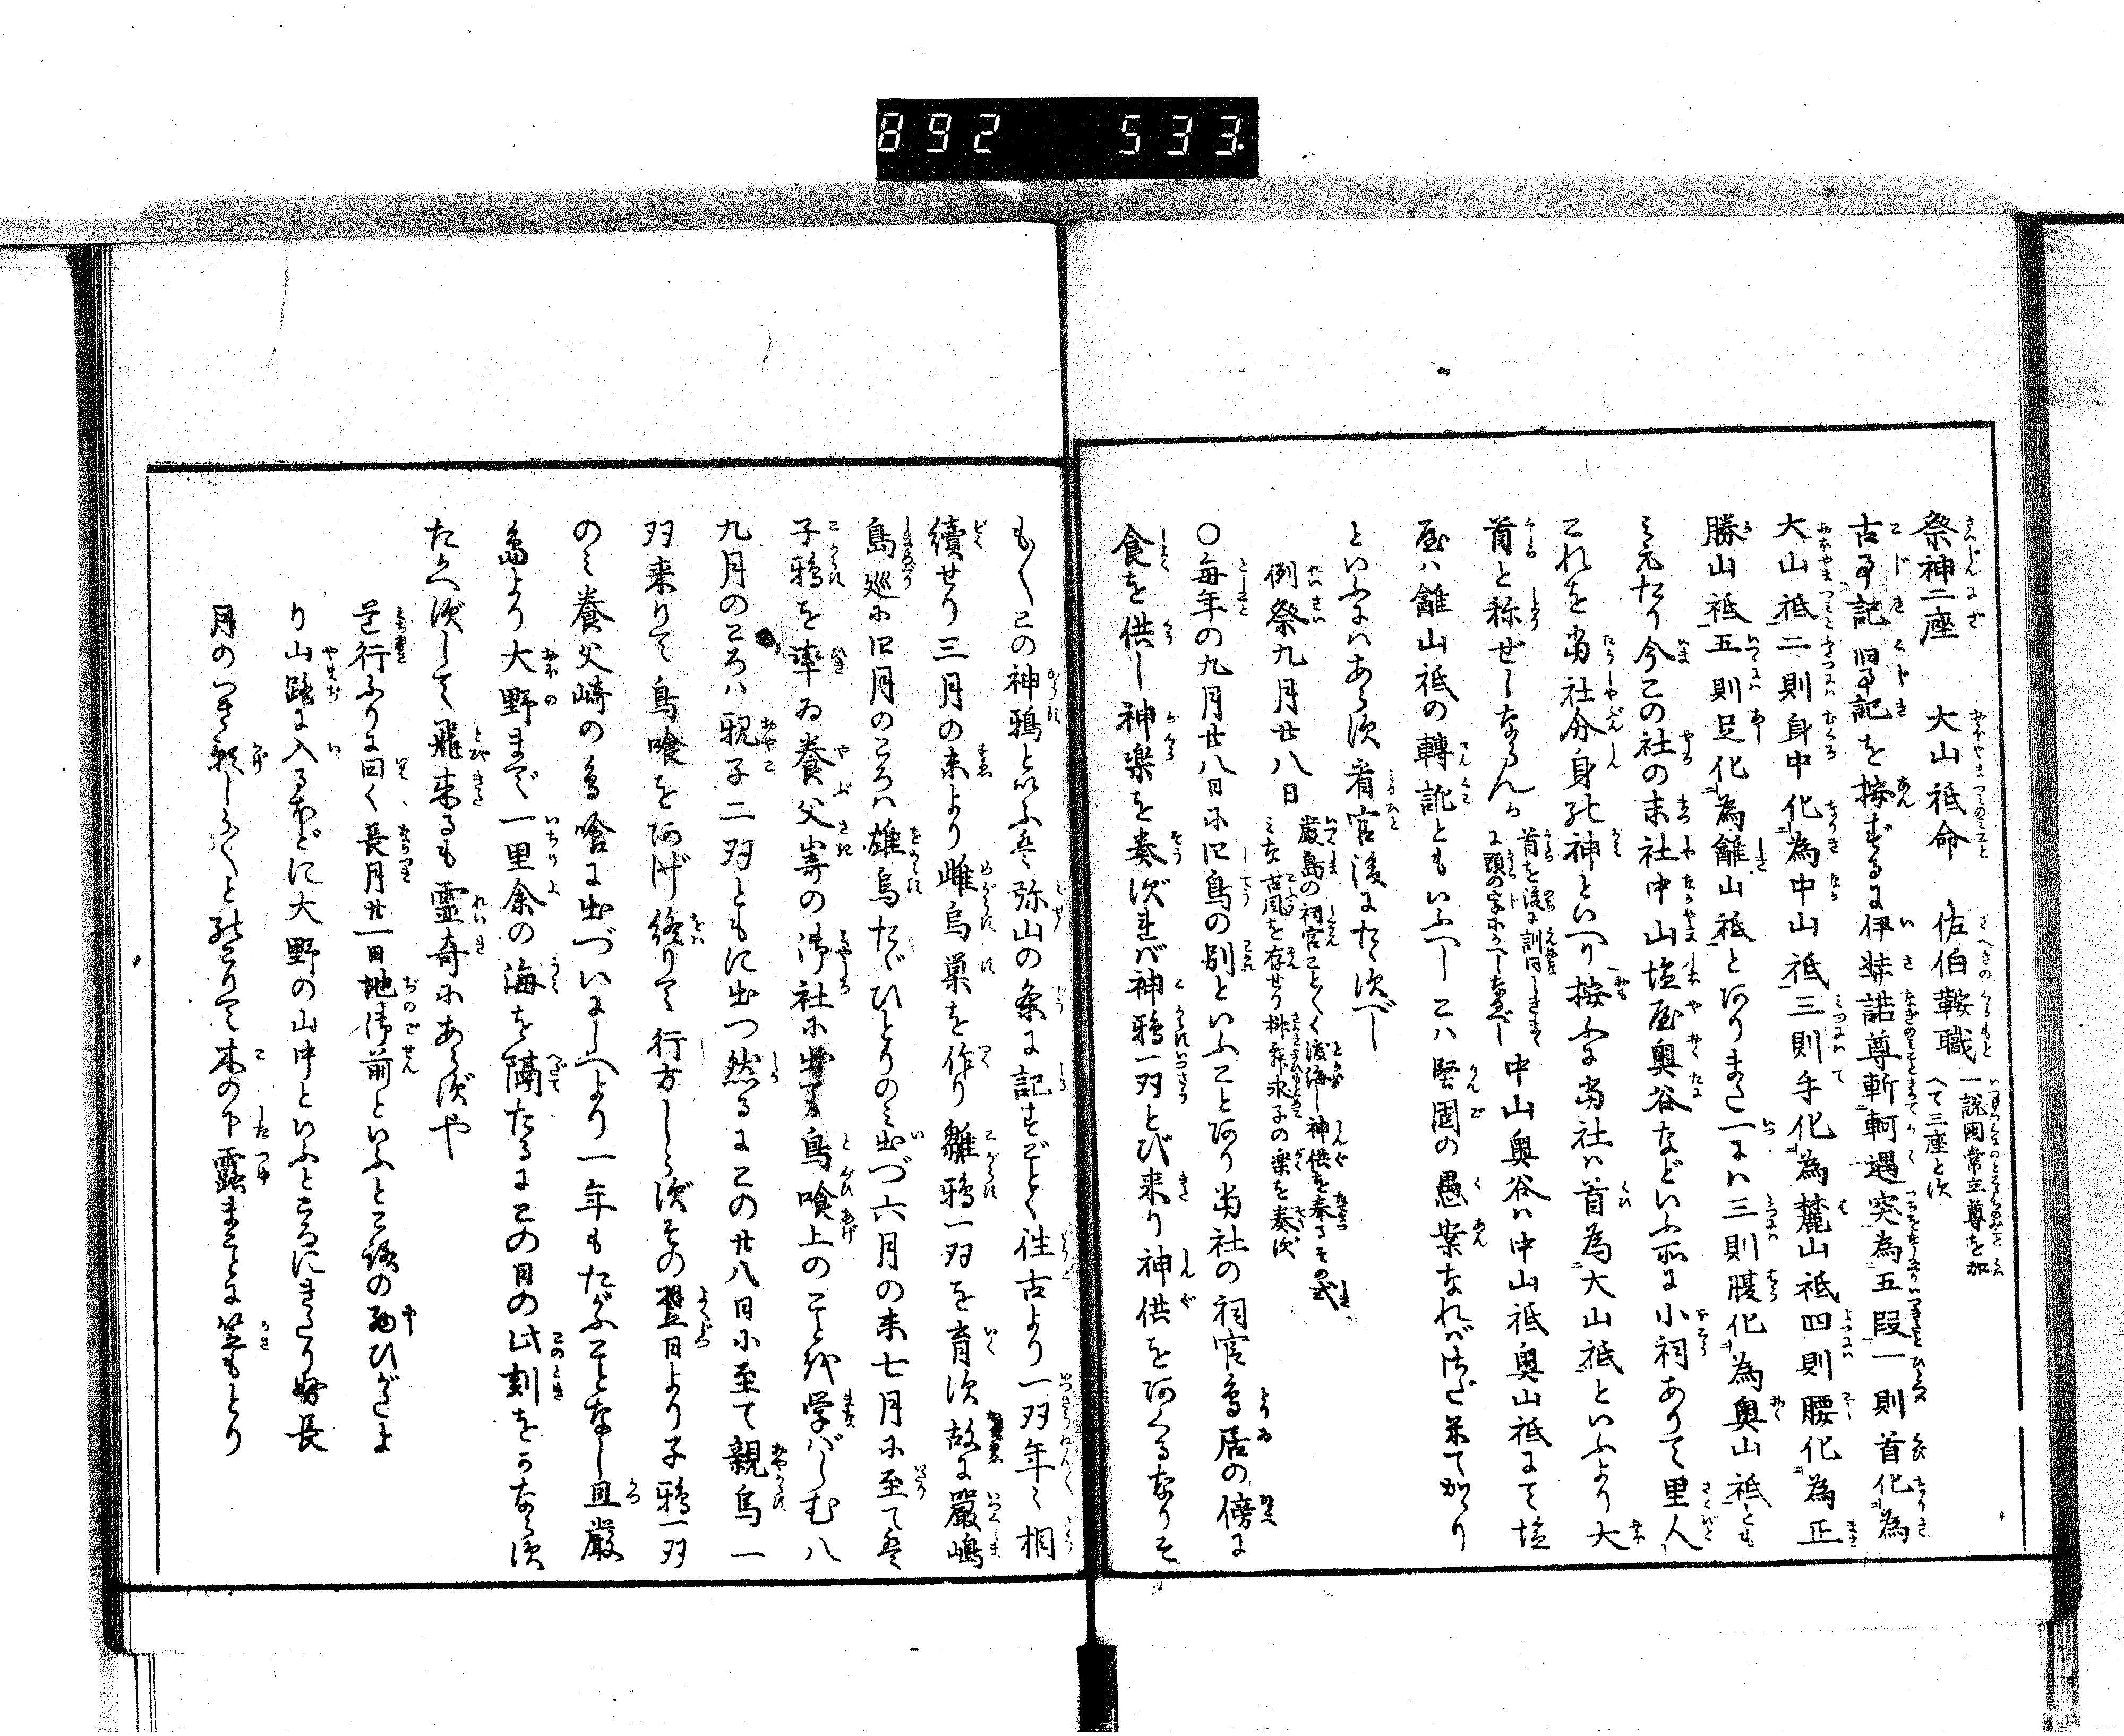 892 533
祭神二座 大山祇命 佐伯鞍職 一説国常立尊を加へて三座とす
古事記旧事記を按ずるに伊弉諾尊斬軻遇突為五段一則首化為
大山祇二則身中化為中山祇三則手化為麓山祇四則腰化為正
勝山祇五則足化為䨄山祇とありまた一には三則腹化為奥山祇とも
みえたり今この社の末社中山塩屋奥谷などいふ所に小祠ありて里人
これを当社分身の神といへり按ふに当社は首為大山祇といふより大
首と称ぜしならんか 中山奥谷は中山祇奥山祇にて塩
屋は䨄山祇の轉訛ともいふべしこは堅固の愚案なればさだ
といふにはあらず看官後にたゞすべし
例祭九月廿八日 厳島の祠官ことごとく渡海し神供を奉るその式
みな古風を存せり 求子の楽を奏す
〇毎年の九月廿八日に四鳥の別といふことあり当社の祠官鳥居の傍に
食を供し神楽を奏すれば神鴉一双とび来り神供をあぐるなりそ
もそもこの神鴉といふは弥山の条に記すごとく往古より一双年々相
續せり三月の末より雌烏巣を作り雛鴉一双を育す故に嚴嶋
島巡に四月のころは雄烏たゞひとりのみ出づ六月の末七月に至ては
子鴉を率ゐ養父崎の御社に出て鳥喰上のことを学ばしむ八
九月のころは親子二双ともに出つ然るにこの廿八日に至て親烏一
双来りて鳥喰をあげ終りて行方しらずその翌日より子鴉一双
のみ養父崎の鳥喰に出づいにしへより一年もたがふことなし且嚴
島より大野まで一里余の海を隔たるにこの日の此刻をかならず
たがへずして飛来るも霊奇にあらずや
道行ふりに曰く長月廿一日地御前といふところの西ひがしよ
り山路に入るほどに大野の山中といふところにきたり
月のつき影しらくとのこりて木の下露まことに笠もとり